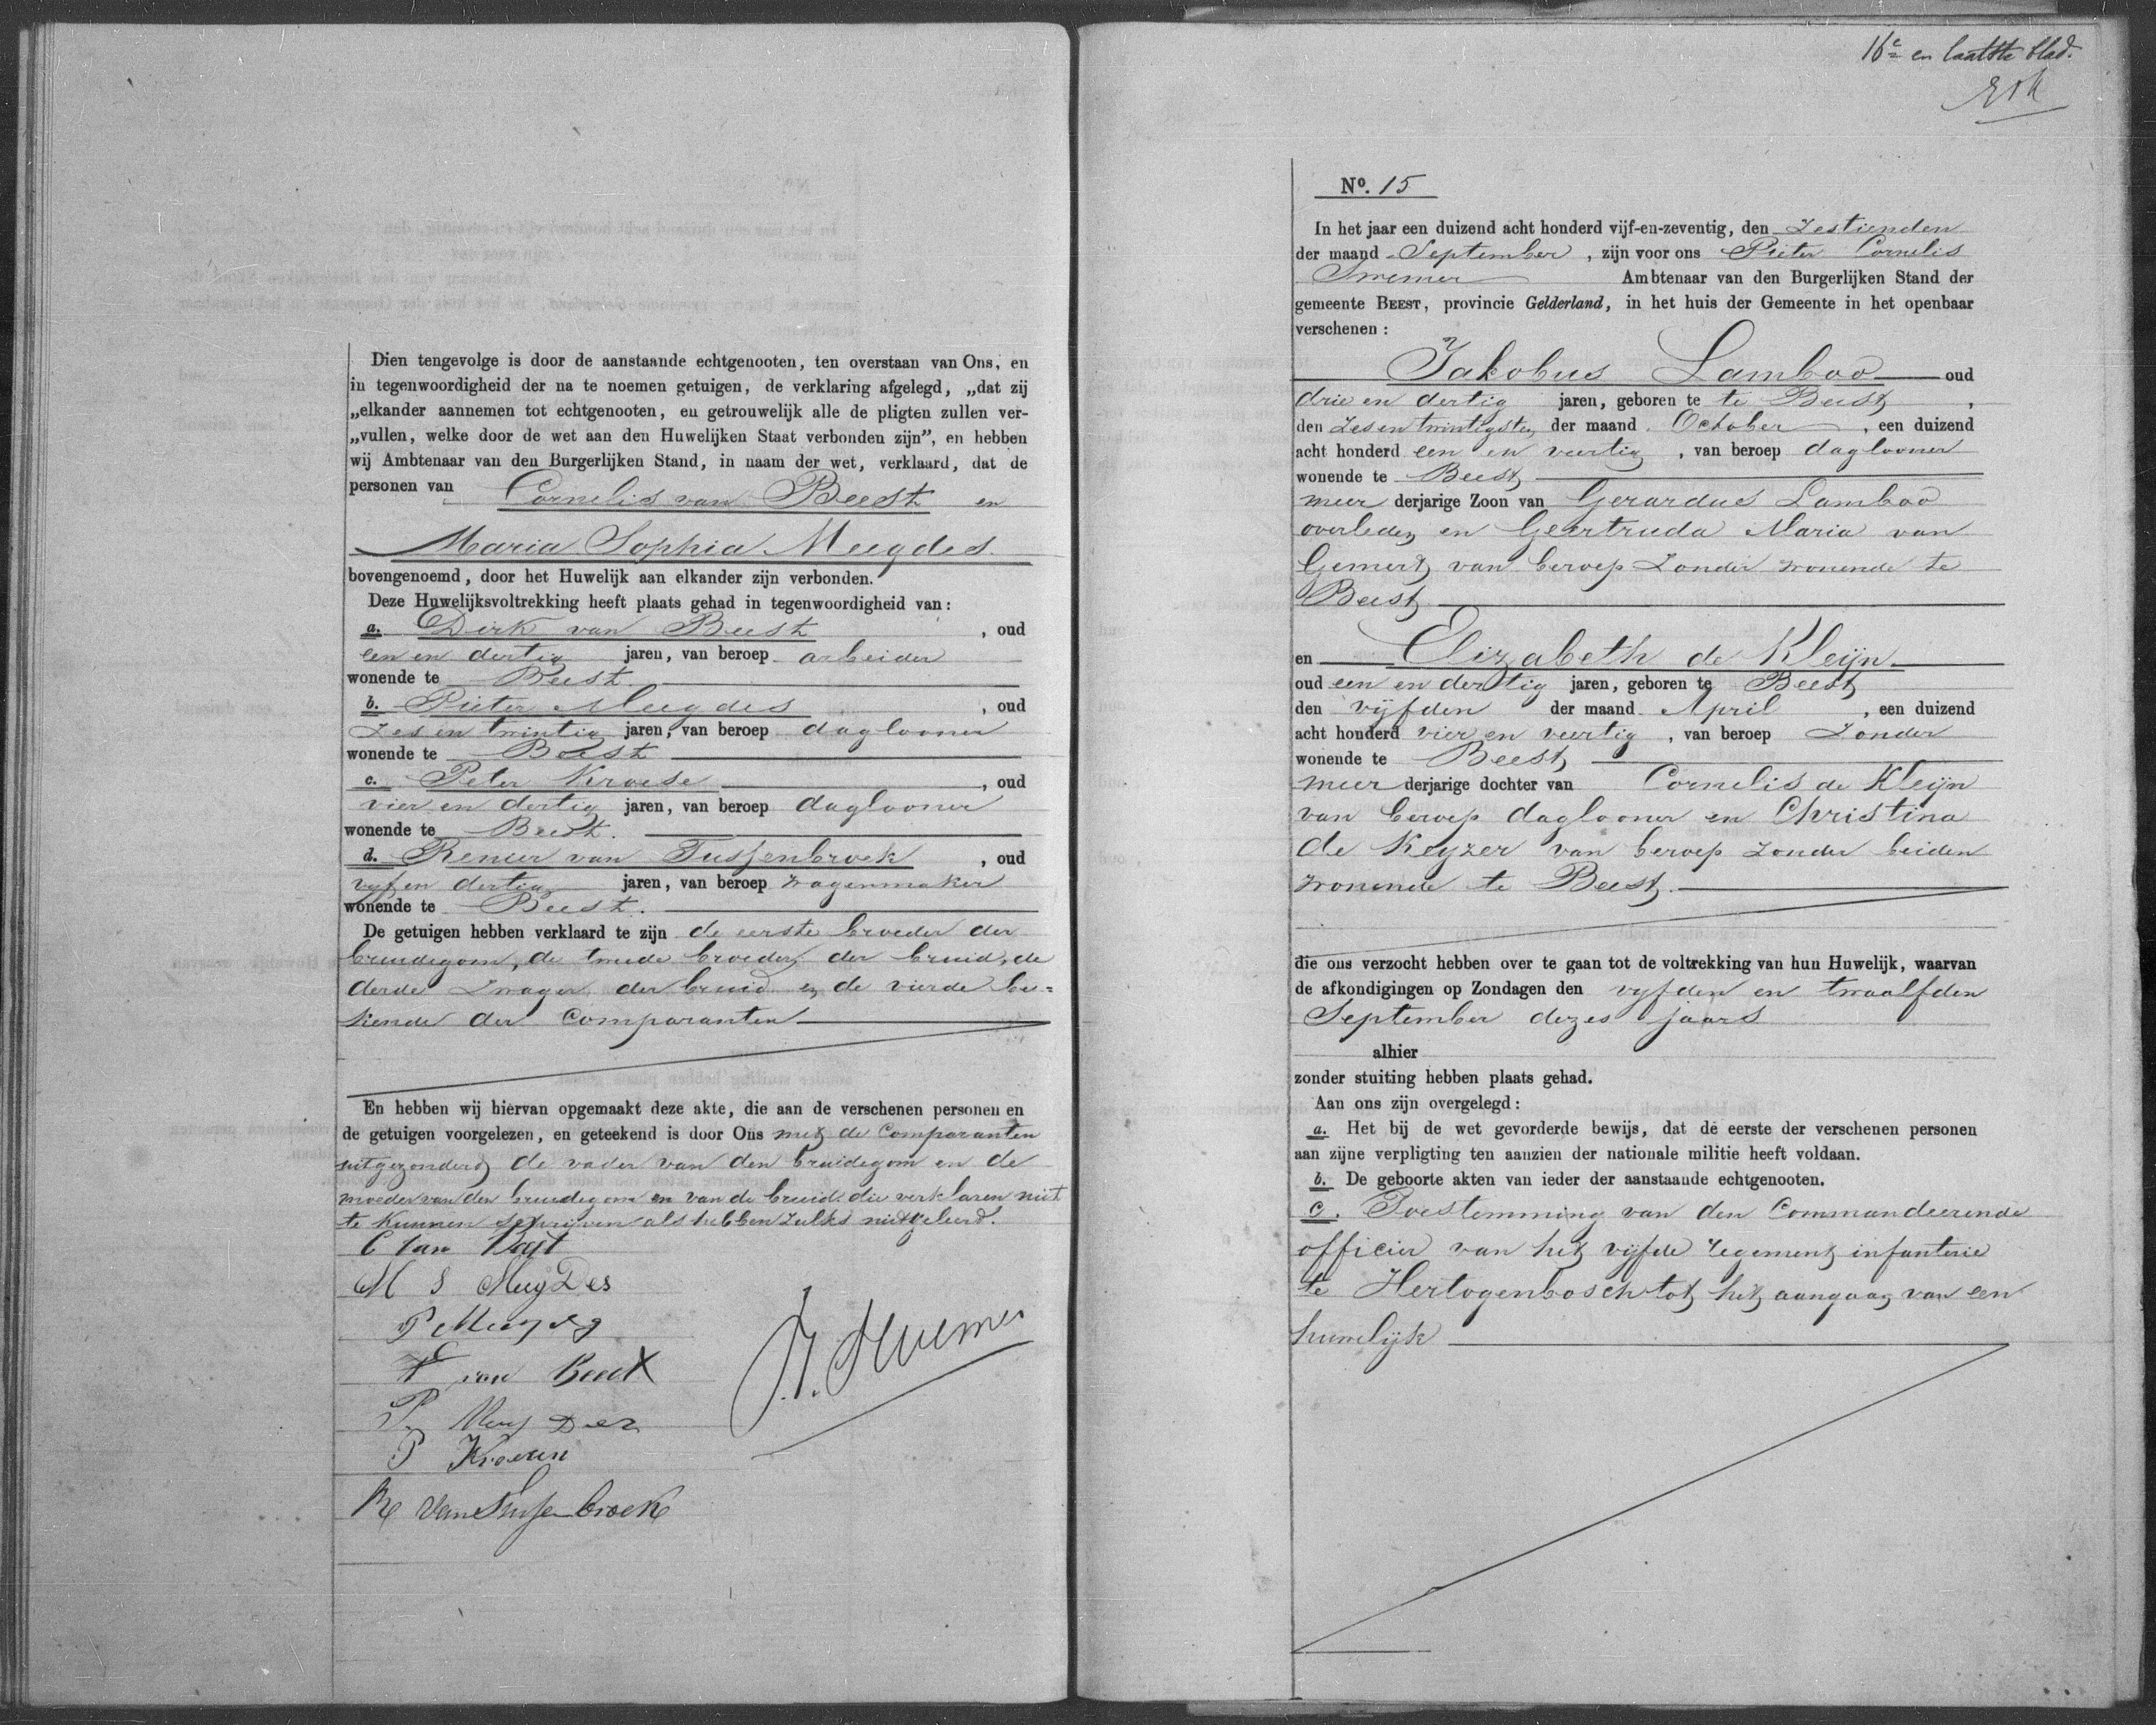 Dien tengevolge is door de aanstaande echtgenooten, ten overstaan van Ons, en
in tegenwoordigheid der na te noemen getuigen, de verklaring afgelegd, „dat zij
„elkander aannemen tot echtgenooten, en getrouwelijk alle de pligten zullen ver-
„vullen, welke door de wet aan den Huwelijken Staat verbonden zijn”, en hebben
wij Ambtenaar van den Burgerlijken Stand, in naam der wet, verklaard, dat de
personen van Cornelis van Beest en
Maria Sophia Meugdes
bovengenoemd, door het Huwelijk aan elkander zijn verbonden.
Deze Huwelijksvoltrekking heeft plaats gehad in tegenwoordigheid van:
a. Dirk van Beest, oud
een en dertig jaren, van beroep arbeider
wonende te Beest.
b. Pieter Meugdes, oud
Zes en twintig jaren, van beroep daglooner
wonende te Beest
c. Peter Kroese, oud
vier en dertig jaren, van beroep daglooner
wonende te Beest.
d. Renier van Tussenbroek, oud
vyf en dertig jaren, van beroep wagenmaker
wonende te Beest.
De getuigen hebben verklaard te zijn de eerste broeder der
bruidegom, de tweede broeder der bruid, de
derde Zwager der bruid en de vierde be=
kende der Comparanten
En hebben wij hiervan opgemaakt deze akte, die aan de verschenen personen en
de getuigen voorgelezen, en geteekend is door Ons met de Comparanten
uitgezonderd de vader van den bruidegom en de
moeder van den bruidegom en van de bruid die verklaren niet
te kunnen schrijven als hebben zulks niet geleerd.
C van Beest
M S MeugDes
P
van Beest
P
P Kroesen
R van Tussenbroek
Swemer
16e en laatste blad.
No. 15
In het jaar een duizend acht honderd vijf-en-zeventig, den Zestienden
der maand September, zijn voor ons Pieter Cornelis
Swemer Ambtenaar van den Burgerlijken Stand der
gemeente Beest, provincie Gelderland, in het huis der Gemeente in het openbaar
verschenen:
Jakobus Lamboo oud
drie en dertig jaren, geboren te te Beest,
den Zes en twintigsten der maand October, een duizend
acht honderd een en veertig, van beroep daglooner
wonende te Beest
meer derjarige Zoon van Gerardus Lamboo
overleden en Geertruda Maria van
Gemert van beroep Zonder wonende te
Beest
en Elizabeth de Kleijn
oud een en dertig jaren, geboren te Beest
den vijfden der maand April, een duizend
acht honderd vier en veertig, van beroep Zonder
wonende te Beest
meer derjarige dochter van Cornelis de Kleijn
van beroep daglooner en Christina
de Keyzer van beroep zonder beiden
wonende te Beest.
die ons verzocht hebben over te gaan tot de voltrekking van hun Huwelijk, waarvan
de afkondigingen op Zondagen den vyfden en twaalfden
September dezes jaars
alhier
zonder stuiting hebben plaats gehad.
Aan ons zijn overgelegd:
a. Het bij de wet gevorderde bewijs, dat de eerste der verschenen personen
aan zijne verpligting ten aanzien der nationale militie heeft voldaan.
b. De geboorte akten van ieder der aanstaande echtgenooten.
c. Toestemming van den Commandeerende
officier van het vijfde regement infanterie
te Hertogenbosch tot het aangaan van een
huwelijk